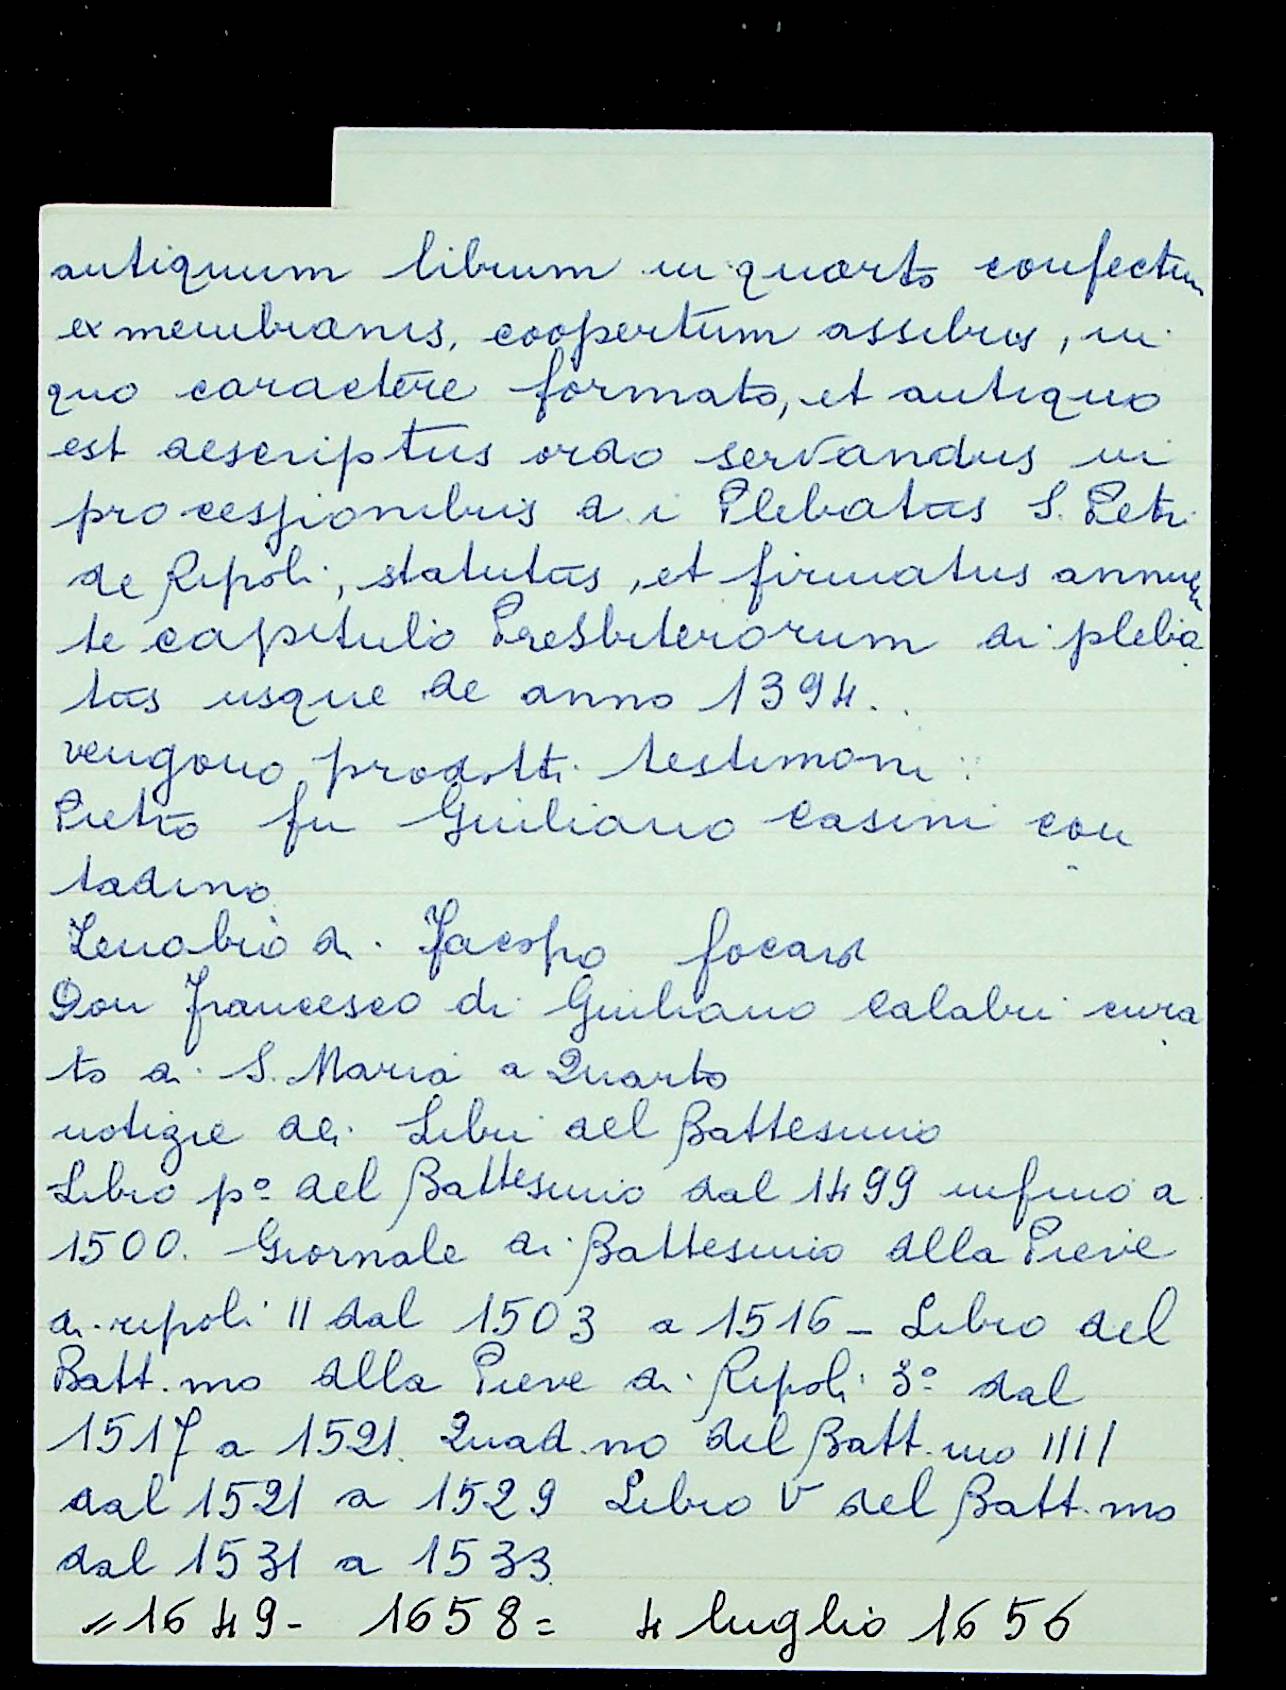 antiquum librum in quarto confectum
ex membranis, coopertum assibus, in
quo caractere formato, et antiquo
est descriptus ordo servandus in
processionibus d i Plebatus S. Petri
de Ripoli, statutus, et firmatus annuen
te capitulo Presbiterorum di pleba
tus usque de anno 1394.
vengono prodotti testimoni:
Pietro fu Giuliano Casini con
tadino
Zenobio di Jacopo focardi
Don Francesco di Giuliano Calabri cura
to di S. Maria a Quarto
notizie dei Libri del Battesimo
Libro p° del Battesimo dal 1499 infino a
1500. Giornale di Battesimo alla Pieve
di ripoli II dal 1503 a 1516 - Libro del
Batt.mo alla Pieve di Ripoli 3° dal
1517 a 1521. Quad.no del Batt.mo IIII
dal 1521 a 1529 Libro V del Batt.mo
dal 1531 a 1533
= 1649 - 1658 = 4 luglio 1656